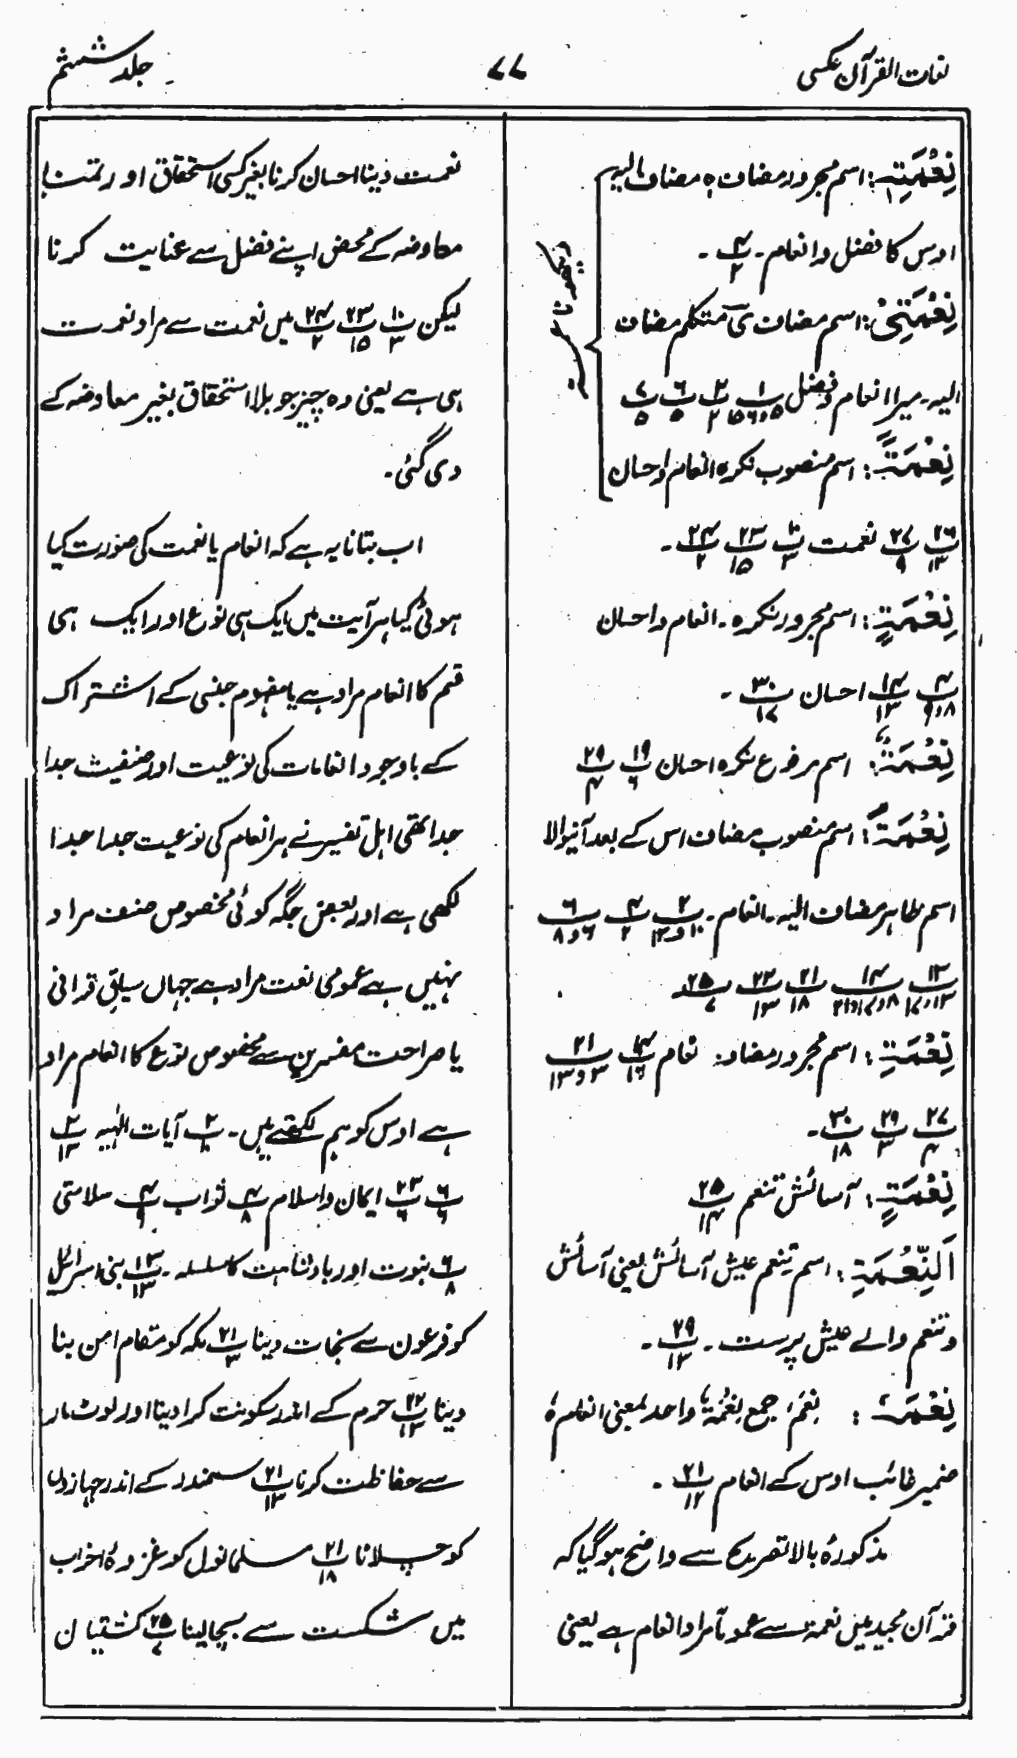 لغات القرآن عکسی
۷۷
جلد ششم
نِعْمَتِہٖ: اسم مجرور مضاف ہ مضاف الیہ
اوس کا فضل و انعام۔ ۴/۲ ۔
نِعْمَتِیْ: اسم مضاف یَ متکلم مضاف
الیہ۔ میرا انعام و فضل ۱/۵و۶و۱۵ ۲/۲ ۶/۵ ۷/۵
نِعْمَۃً: اسم منصوب نکرہ انعام و احسان
دیکھو نا
۲۶/۱۳ ۲۷/۹ نعمت ۱۰/۳ ۲۳/۱۵ ۲۴/۲ ۔
نِعْمَۃٍ: اسم مجرور نکرہ۔ انعام و احسان
۴/۸و۹ ۱۴/۱۳ احسان ۳۰/۱۷ ۔
نِعْمَۃٌ: اسم مرفوع نکرہ احسان ۱۹/۶ ۲۹/۴
نِعْمَۃَ: اسم منصوب مضاف اس کے بعد آنیوالا
اسم ظاہر مضاف الیہ۔ انعام۔ ۲/۱۰و۱۲ ۴/۲ ۶/۶و۸
۱۳/۱۳و۱۷ ۱۴/۸و۱۷و۲۱ ۲۱/۱۸ ۲۲/۱۳ ۲۵/۷
نِعْمَۃِ: اسم مجرور مضاف: نعام ۱۴/۱۶ ۲۱/۳و۱۳
۲۷/۴ ۲۹/۳ ۳۰/۱۸ ۔
نَعْمَۃٍ: آسائش تنعم ۲۵/۱۴
اَلنَّعْمَۃِ: اسم تنعم عیش آسائش یعنی آسائش
و تنعم والے عیش پرست۔ ۲۹/۱۳ ۔
نِعْمَہٗ: نِعَمٌ جمع نِعْمَۃٌ واحد بمعنی انعام ہٗ
ضمیر غائب اوس کے انعام ۲۱/۱۲ ۔
مذکورہ بالا تصریح سے واضح ہو گیا کہ
قرآن مجید میں نعمۃ سے عموماً مراد انعام ہے یعنی
نعمت دینا احسان کرنا بغیر کسی استحقاق اور تمنا یا
معاوضہ کے محض اپنے فضل سے عنایت کرنا
لیکن ۱۰/۳ ۲۳/۱۵ ۲۴/۲ میں نعمت سے مراد نعمت
ہی ہے یعنی وہ چیز جو بلا استحقاق بغیر معاوضہ کے
دی گئی۔
اب بتانا یہ ہے کہ انعام یا نعمت کی صورت کیا
ہوئی کیا ہر آیت میں ایک ہی نوع اور ایک ہی
قسم کا انعام مراد ہے یا مفہوم جنسی کے اشتراک
کے باوجود انعامات کی نوعیت اور صنفیت جدا
جدا تھی اہل تفسیر نے ہر انعام کی نوعیت جدا جدا
لکھی ہے اور بعض جگہ کوئی مخصوص صنف مراد
نہیں ہے عمومی نعمت مراد ہے جہاں سیاقِ قرآنی
یا صراحت مفسرین سے مخصوص نوع کا انعام مراد
ہے اوس کو ہم لکھتے ہیں۔ ۲/۱۰ آیات الٰہیہ ۲/۱۳
۶/۶ ۲۳/۶ ایمان و اسلام ۴/۸ ثواب ۴/۹ سلامتی
۶/۸ نبوت اور بادشاہت کا سلسلہ۔ ۱۳/۱۳ بنی اسرائیل
کو فرعون سے نجات دینا ۲۱/۳ مکہ کو مقام امن بنا
دینا ۲۲/۱۳ حرم کے اندر سکونت کرا دینا اور لوٹ مار
سے حفاظت کرنا ۲۱/۱۳ سمندر کے اندر جہازوں
کو چلانا ۲۱/۱۸ مسلمانوں کو غزوۂ احزاب
میں شکست سے بچا لینا ۲۵/۷ کشتیاں